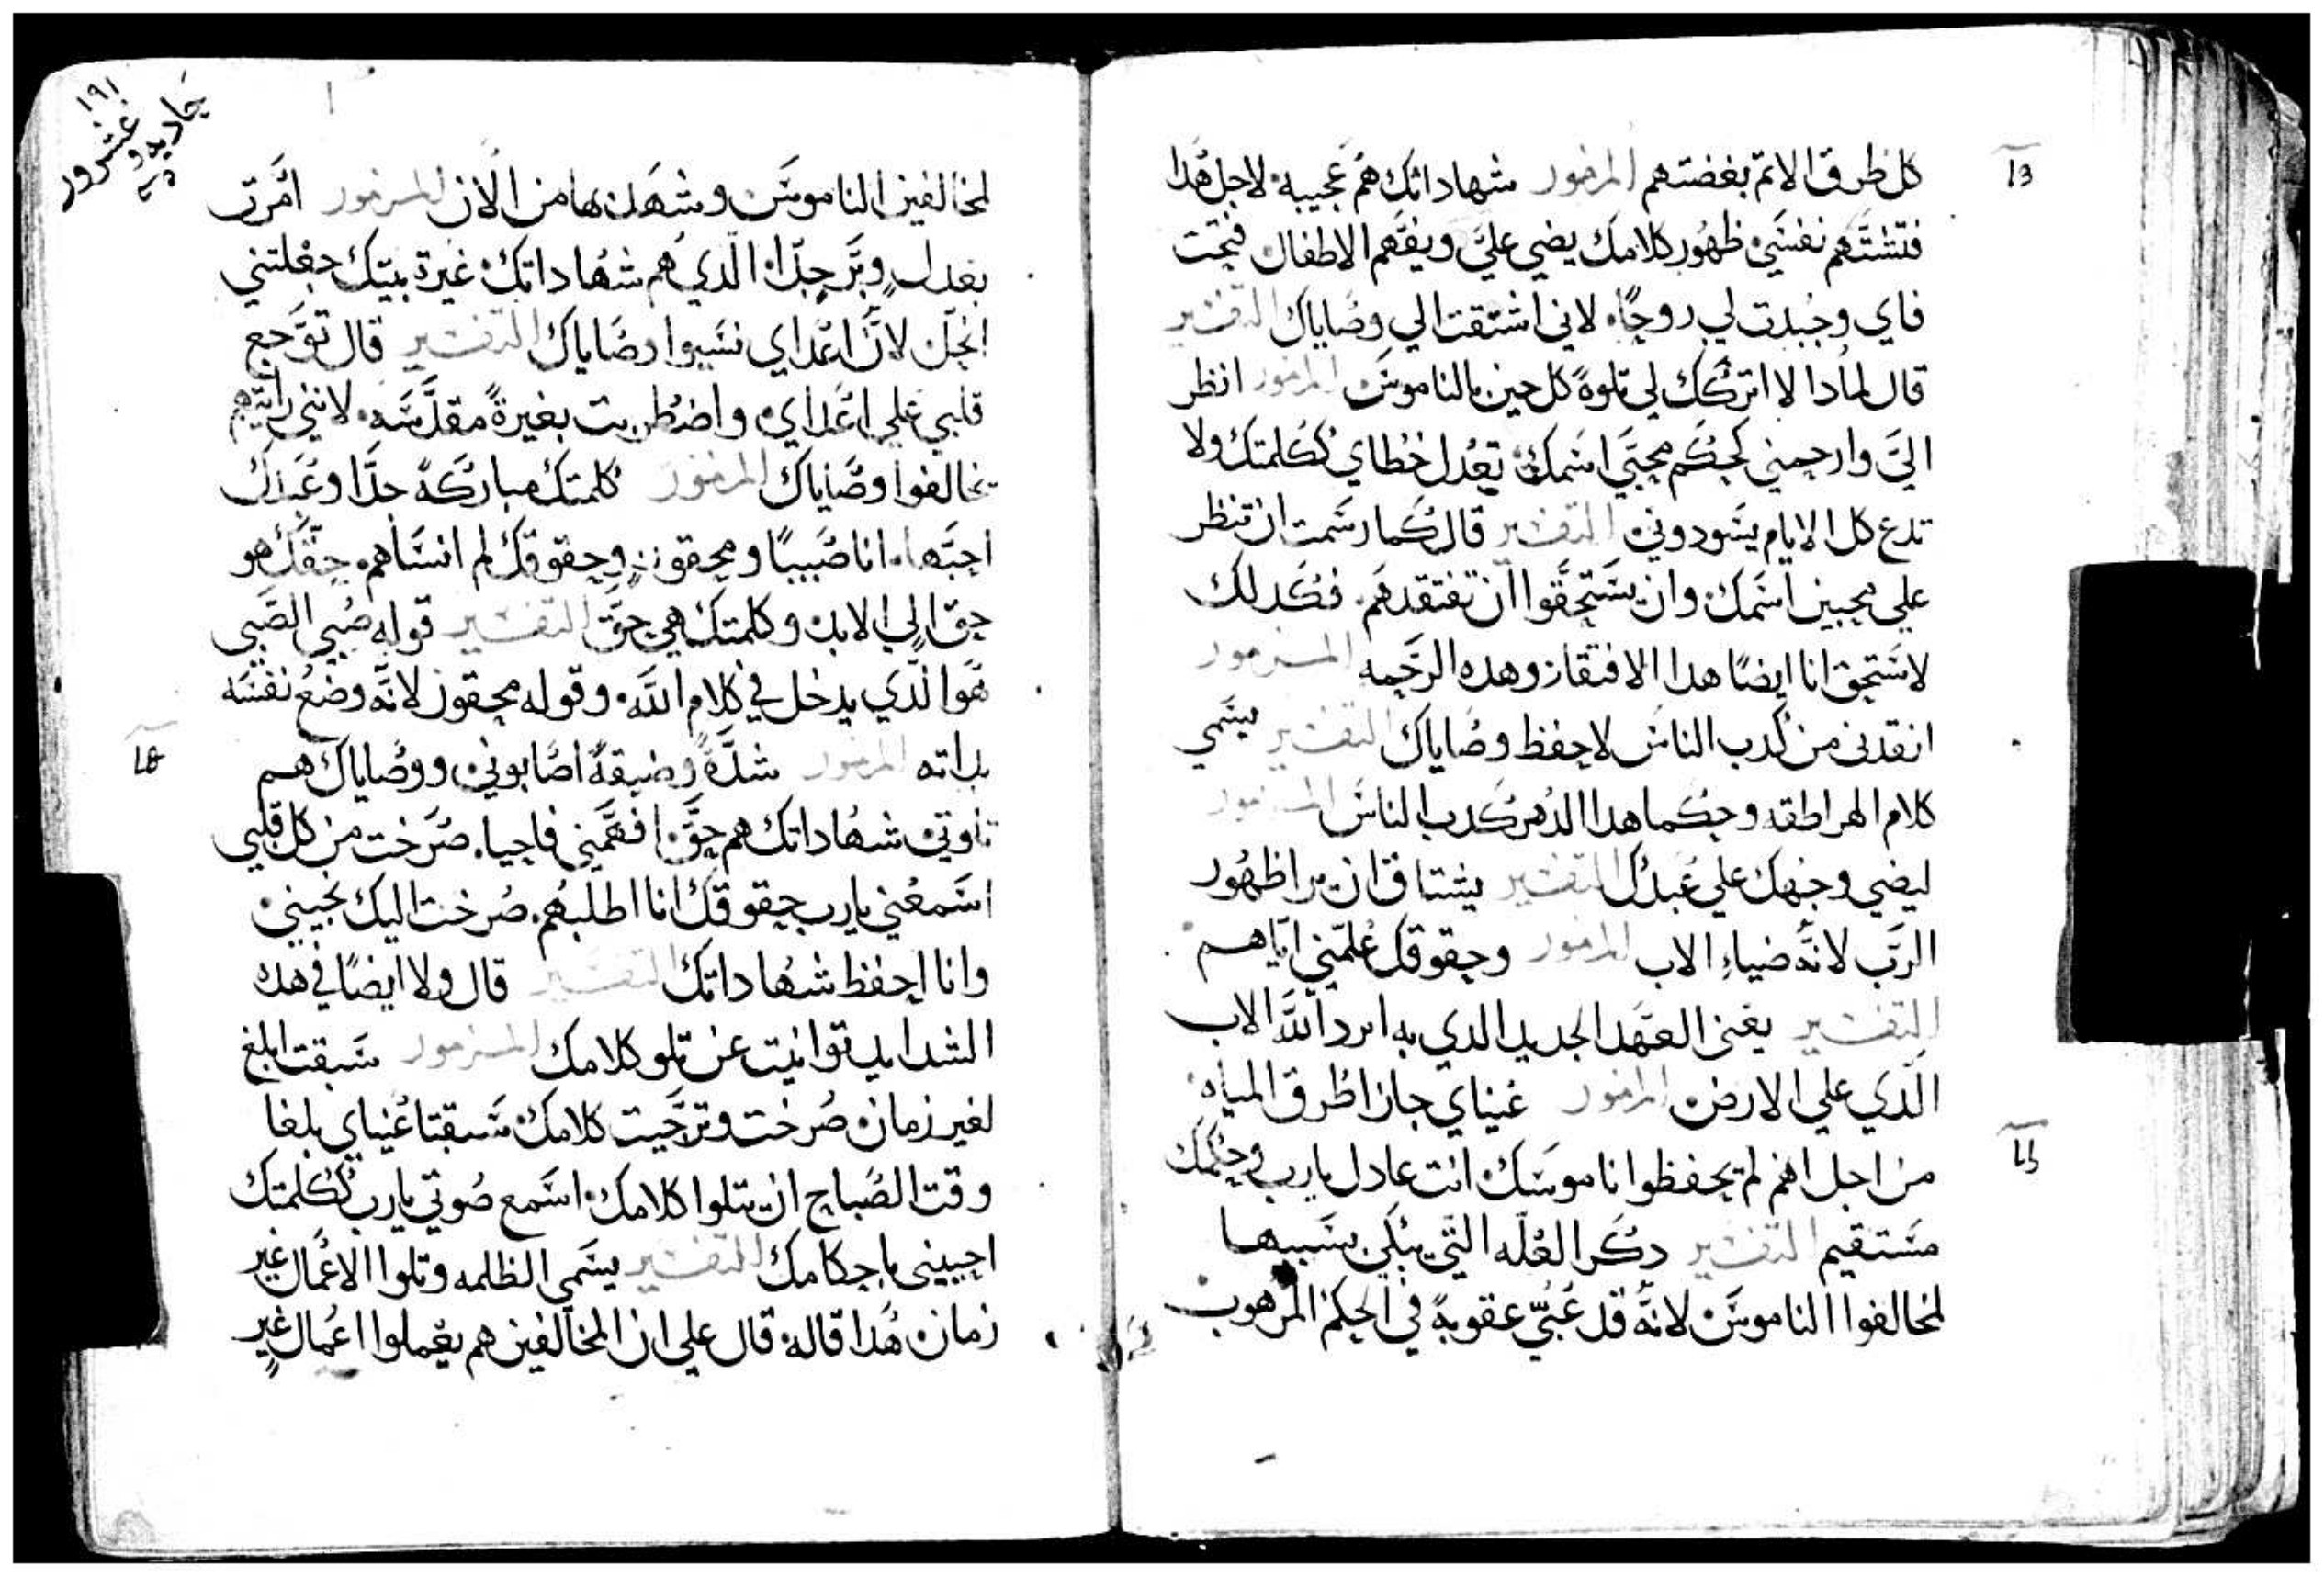 كل طرق الاثم بغضتهم المزمور شهاداتك هم عجيبه لاجل هدا
فتشتهم نفسي ظهور كلامك يضي علي ويفهم الاطفال فتحت
فاي وجبدت لي روحًا لاني اشتقت الي وصاياك التفسير
قال لمادا لا اتركك لي تلوةً كل حين بالناموس المزمور انظر
اليَّ وارحمني كحكم محبي اسمك تعدل خطاي ككلمتك ولا
تدع كل الايام يسودوني التفسير قال كما رسمت ان تنظر
علي محبين اسمك وان يستحقوا ان تفتقدهم فكدلك
لاستحق انا ايضًا هدا الافتقاد وهده الرحمه المزمور
انقدني من كدب الناس لاحفظ وصاياك التفسير يسمي
كلام الهراطقه وحكما هدا الدهر كدب الناس المزمور
ليضي وجهك علي عبدك التفسير يشتاق ان يرا ظهور
الرب لانه ضياء الاب المزمور وحقوقك علمني اياهم
التفسير يعني العهد الجديد الدي به الله الاب
الدي علي الارض المزمور عيناي جازا طرق المياه
من اجل انهم لم يحفظوا ناموسك انت عادل يارب وحكمك
مستقيم التفسير دكر العله التي يبكي بسببها
لمخالفوا الناموس لانه قد عبي عقوبة في الحكم المرهوب
١٩١
حاديه و
عشرون
لمخالفين الناموس وشهد بها من الان المزمور امرت
بعدل وبر جدًا الدي هم شهاداتك غيرة بيتك جعلتني
انحل لان اعداي نسيوا وصاياك التفسير قال توجع
قلبي علي اعداي واضطربت بغيرة مقدسه لانني رايتهم
يخالفوا وصاياك المزمور كلمتك مباركة جدًا وعبدك
احبها انا صبيبًا ومحقور وحقوقك لم انساهم حقك هو
حق الي الابد وكلمتك هي حق التفسير قوله صبي الصبي
هو الدي يدخل في كلام الله وقوله محقور لانه وضع نفسه
بداته المزمور شدة وضيقة اصابوني ووصاياك هم
تلوتي شهاداتك هم حق افهمني فاحيا صرخت من كل قلبي
اسمعني يارب حقوقك انا اطلبهم صرخت اليك نجيني
وانا احفظ شهاداتك التفسير قال ولا ايضًا في هده
الشدايد توانيت عن تلو كلامك المزمور سبقت ابلغ
لغير زمان صرخت وترجيت كلامك سبقتا عيناي بلغا
وقت الصباح ان يتلوا كلامك اسمع صوتي يارب ككلمتك
احييني باحكامك التفسير يسمي الظلمه وتلوا الاعمال غير
زمان هدا قاله قال علي ان المخالفين هم يعملوا اعمال غير